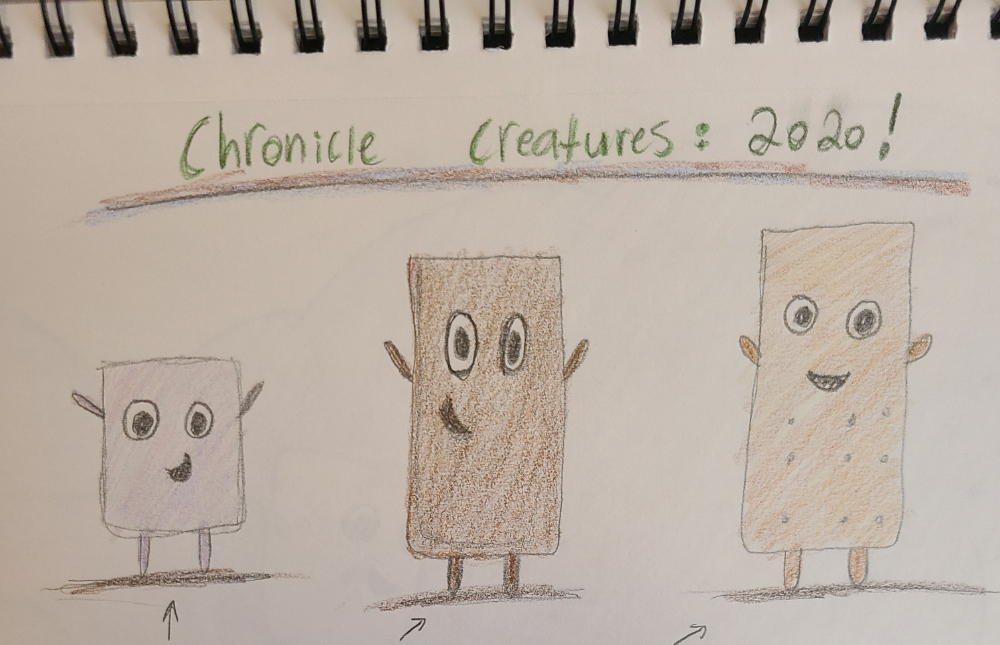 Chronicle Creatures: 2020!